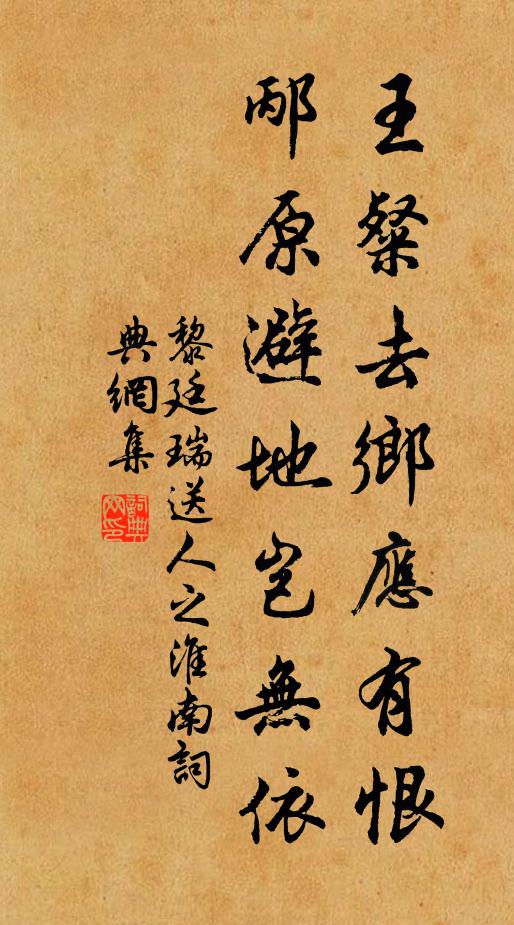 王粲去鄉應有恨
邴原避地豈無依
黎廷瑞送人之淮南詞
典網集
詞典
网印